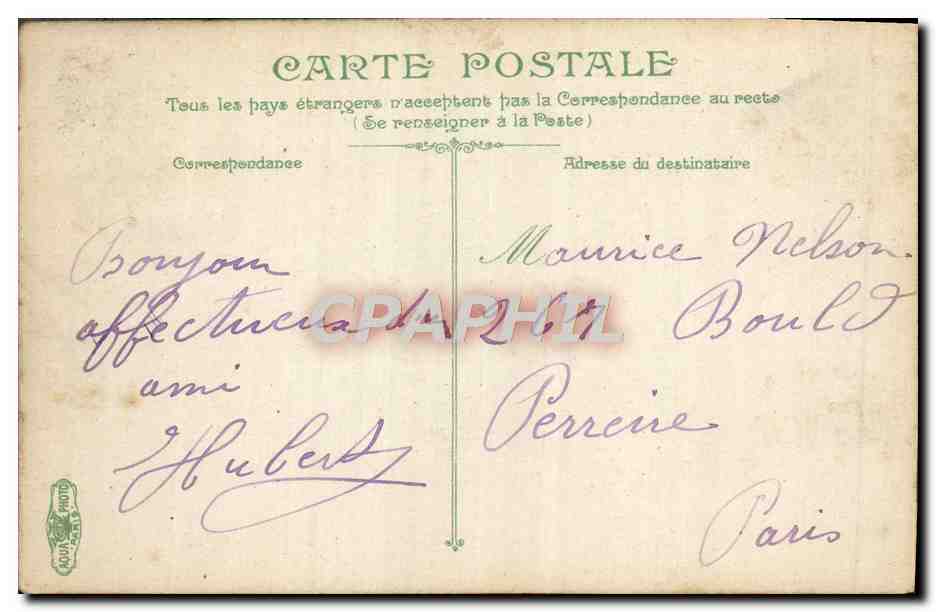 CARTE POSTALE
Tous les pays étrangers n'acceptent pas la Correspondance au recto
(Se renseigner à la Poste)
Correspondance
Adresse du destinataire
Bonjour
affectueux du
ami
Hubert
Maurice Nelson.
267 Bould
Perreire
Paris
AQUA PHOTO
PARIS
CPAPHIL